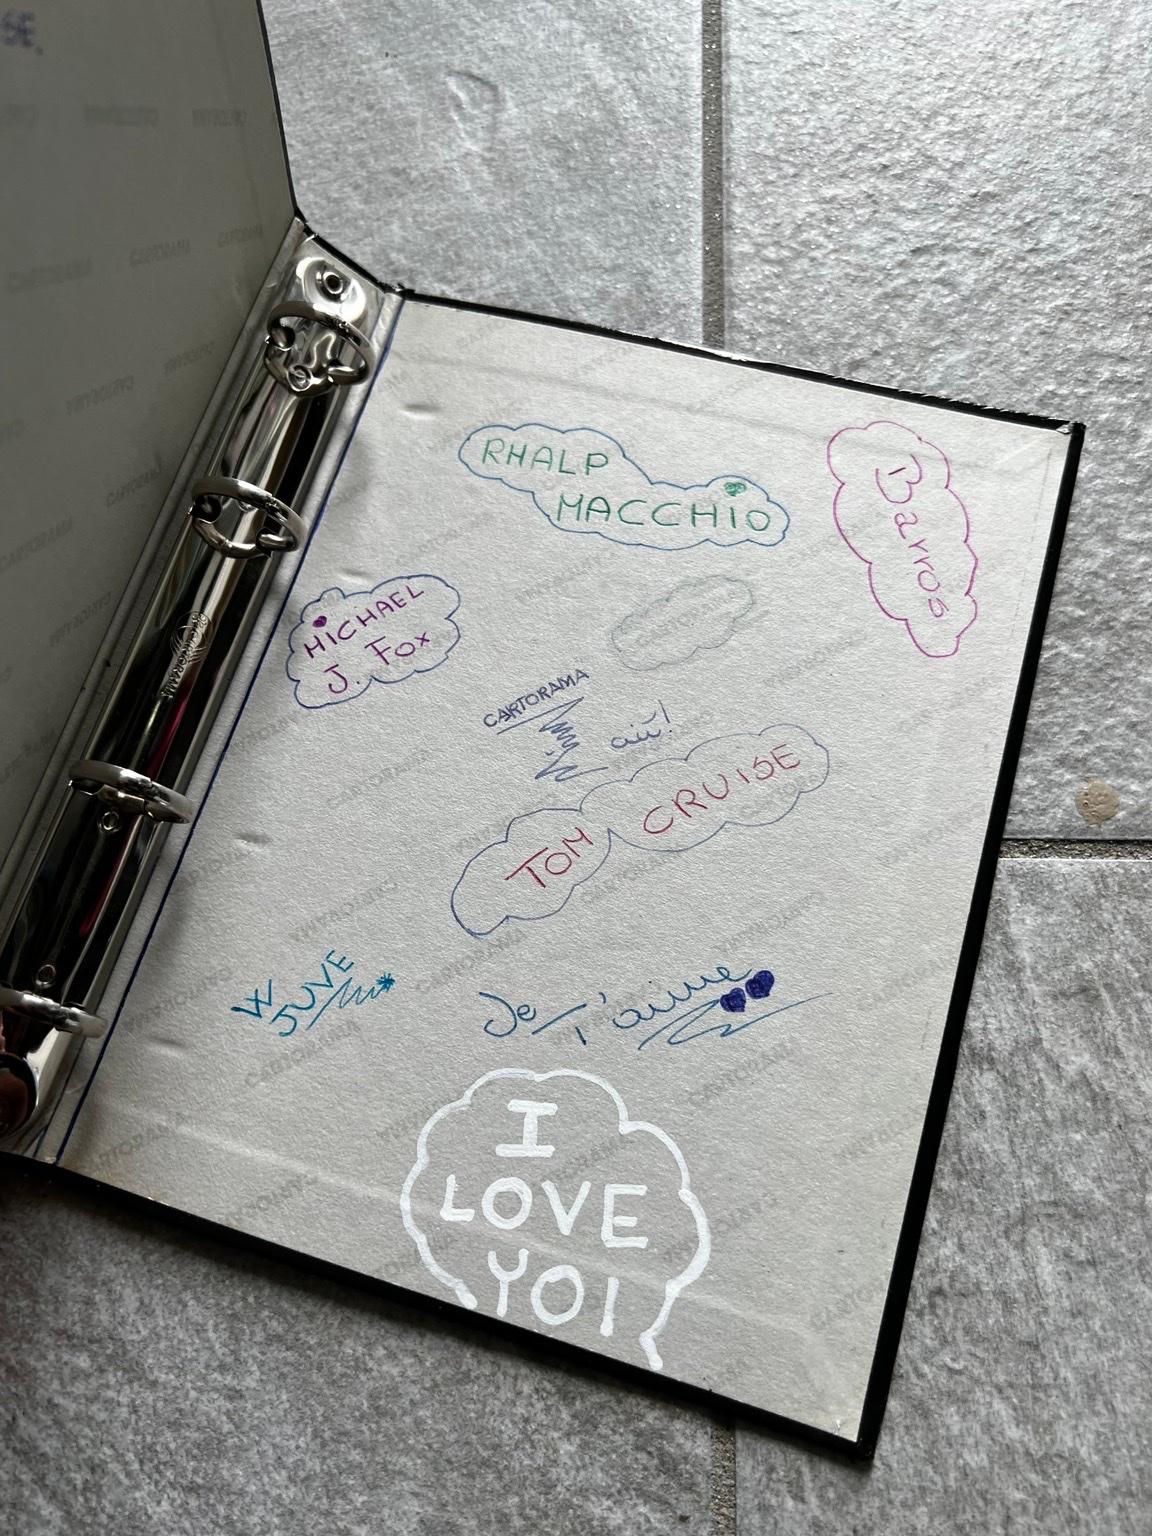 SE.
RHALP
MACCHIO
Barros
MICHAEL
J. Fox
CARTORAMA
aiü!
TOM CRUISE
W
JUVE
Je t'aime
I
LOVE
YOI